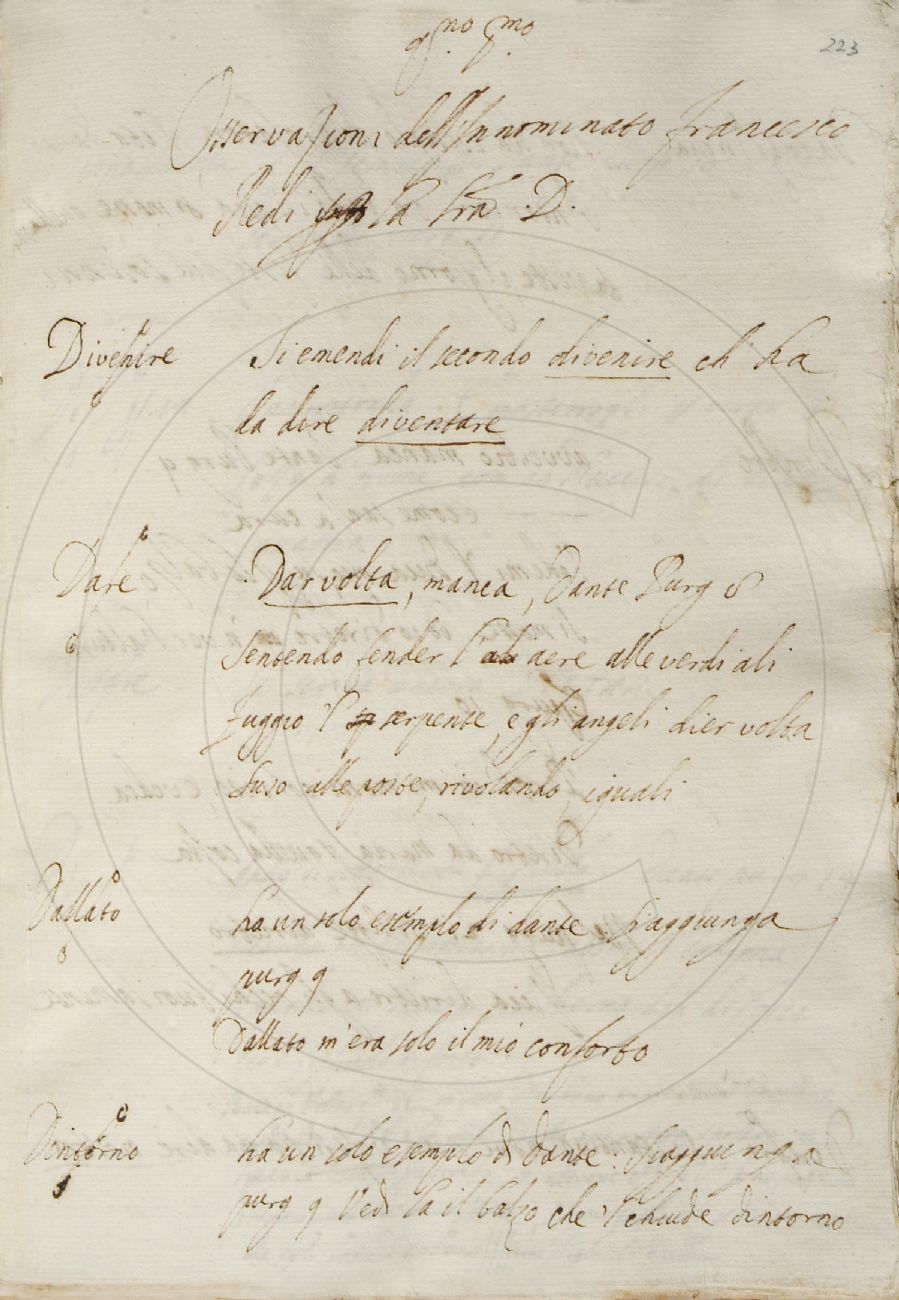 223
Osservazioni dell'Innominato francesco
Redi la lra D.
Divenire Si emendi il secondo divenire ch' ha
da dire diventare
Dare Dar volta, manca, Dante Purg 8
Sentendo fender l' aere alle verdi ali
Fuggio 'l serpente, e gli angeli dier volta
Suso alle poste, rivolando, iguali
Dallato ha un solo esemplo di dante. Si aggiunga
purg 9
Dallato m' era solo il mio conforto
Dintorno ha un solo esemplo di Dante. Si aggiunga
purg 9 Vedi la il balzo che 'l chiude dintorno